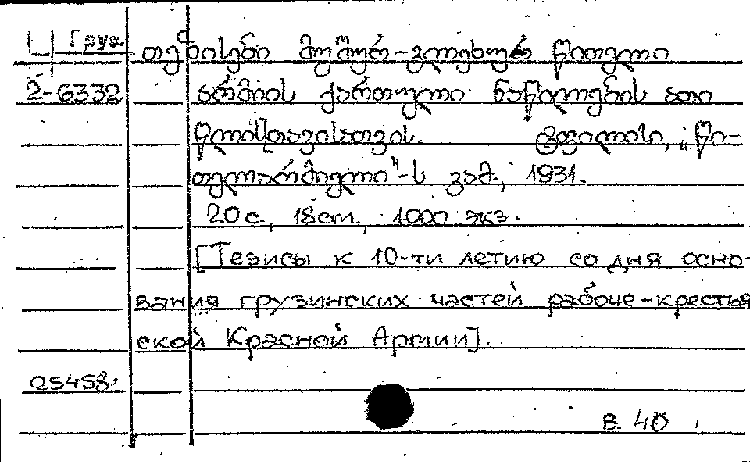 Груз. თეზისები მუშურ-გლეხურ წითელი
2-6332 არმიის ქართული ნაწილების ათი
წლისთავისათვის. ტფილისი, „წი-
თელარმიელი"-ს გამ., 1931.
20 с., 18 cm, 1000 экз.
[Тезисы к 10-ти летию со дня осно-
вания грузинских частей рабоче-крестья
ской Красной Армии].
05458.
в. 40